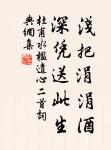 浅把涓涓酒
深凭送此生
杜甫水槛遣心二首词
典网集